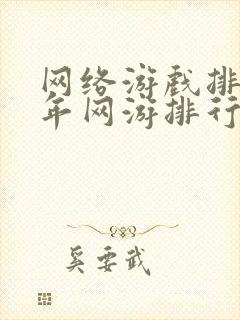 网络游戏排
年网游排行
奚要武